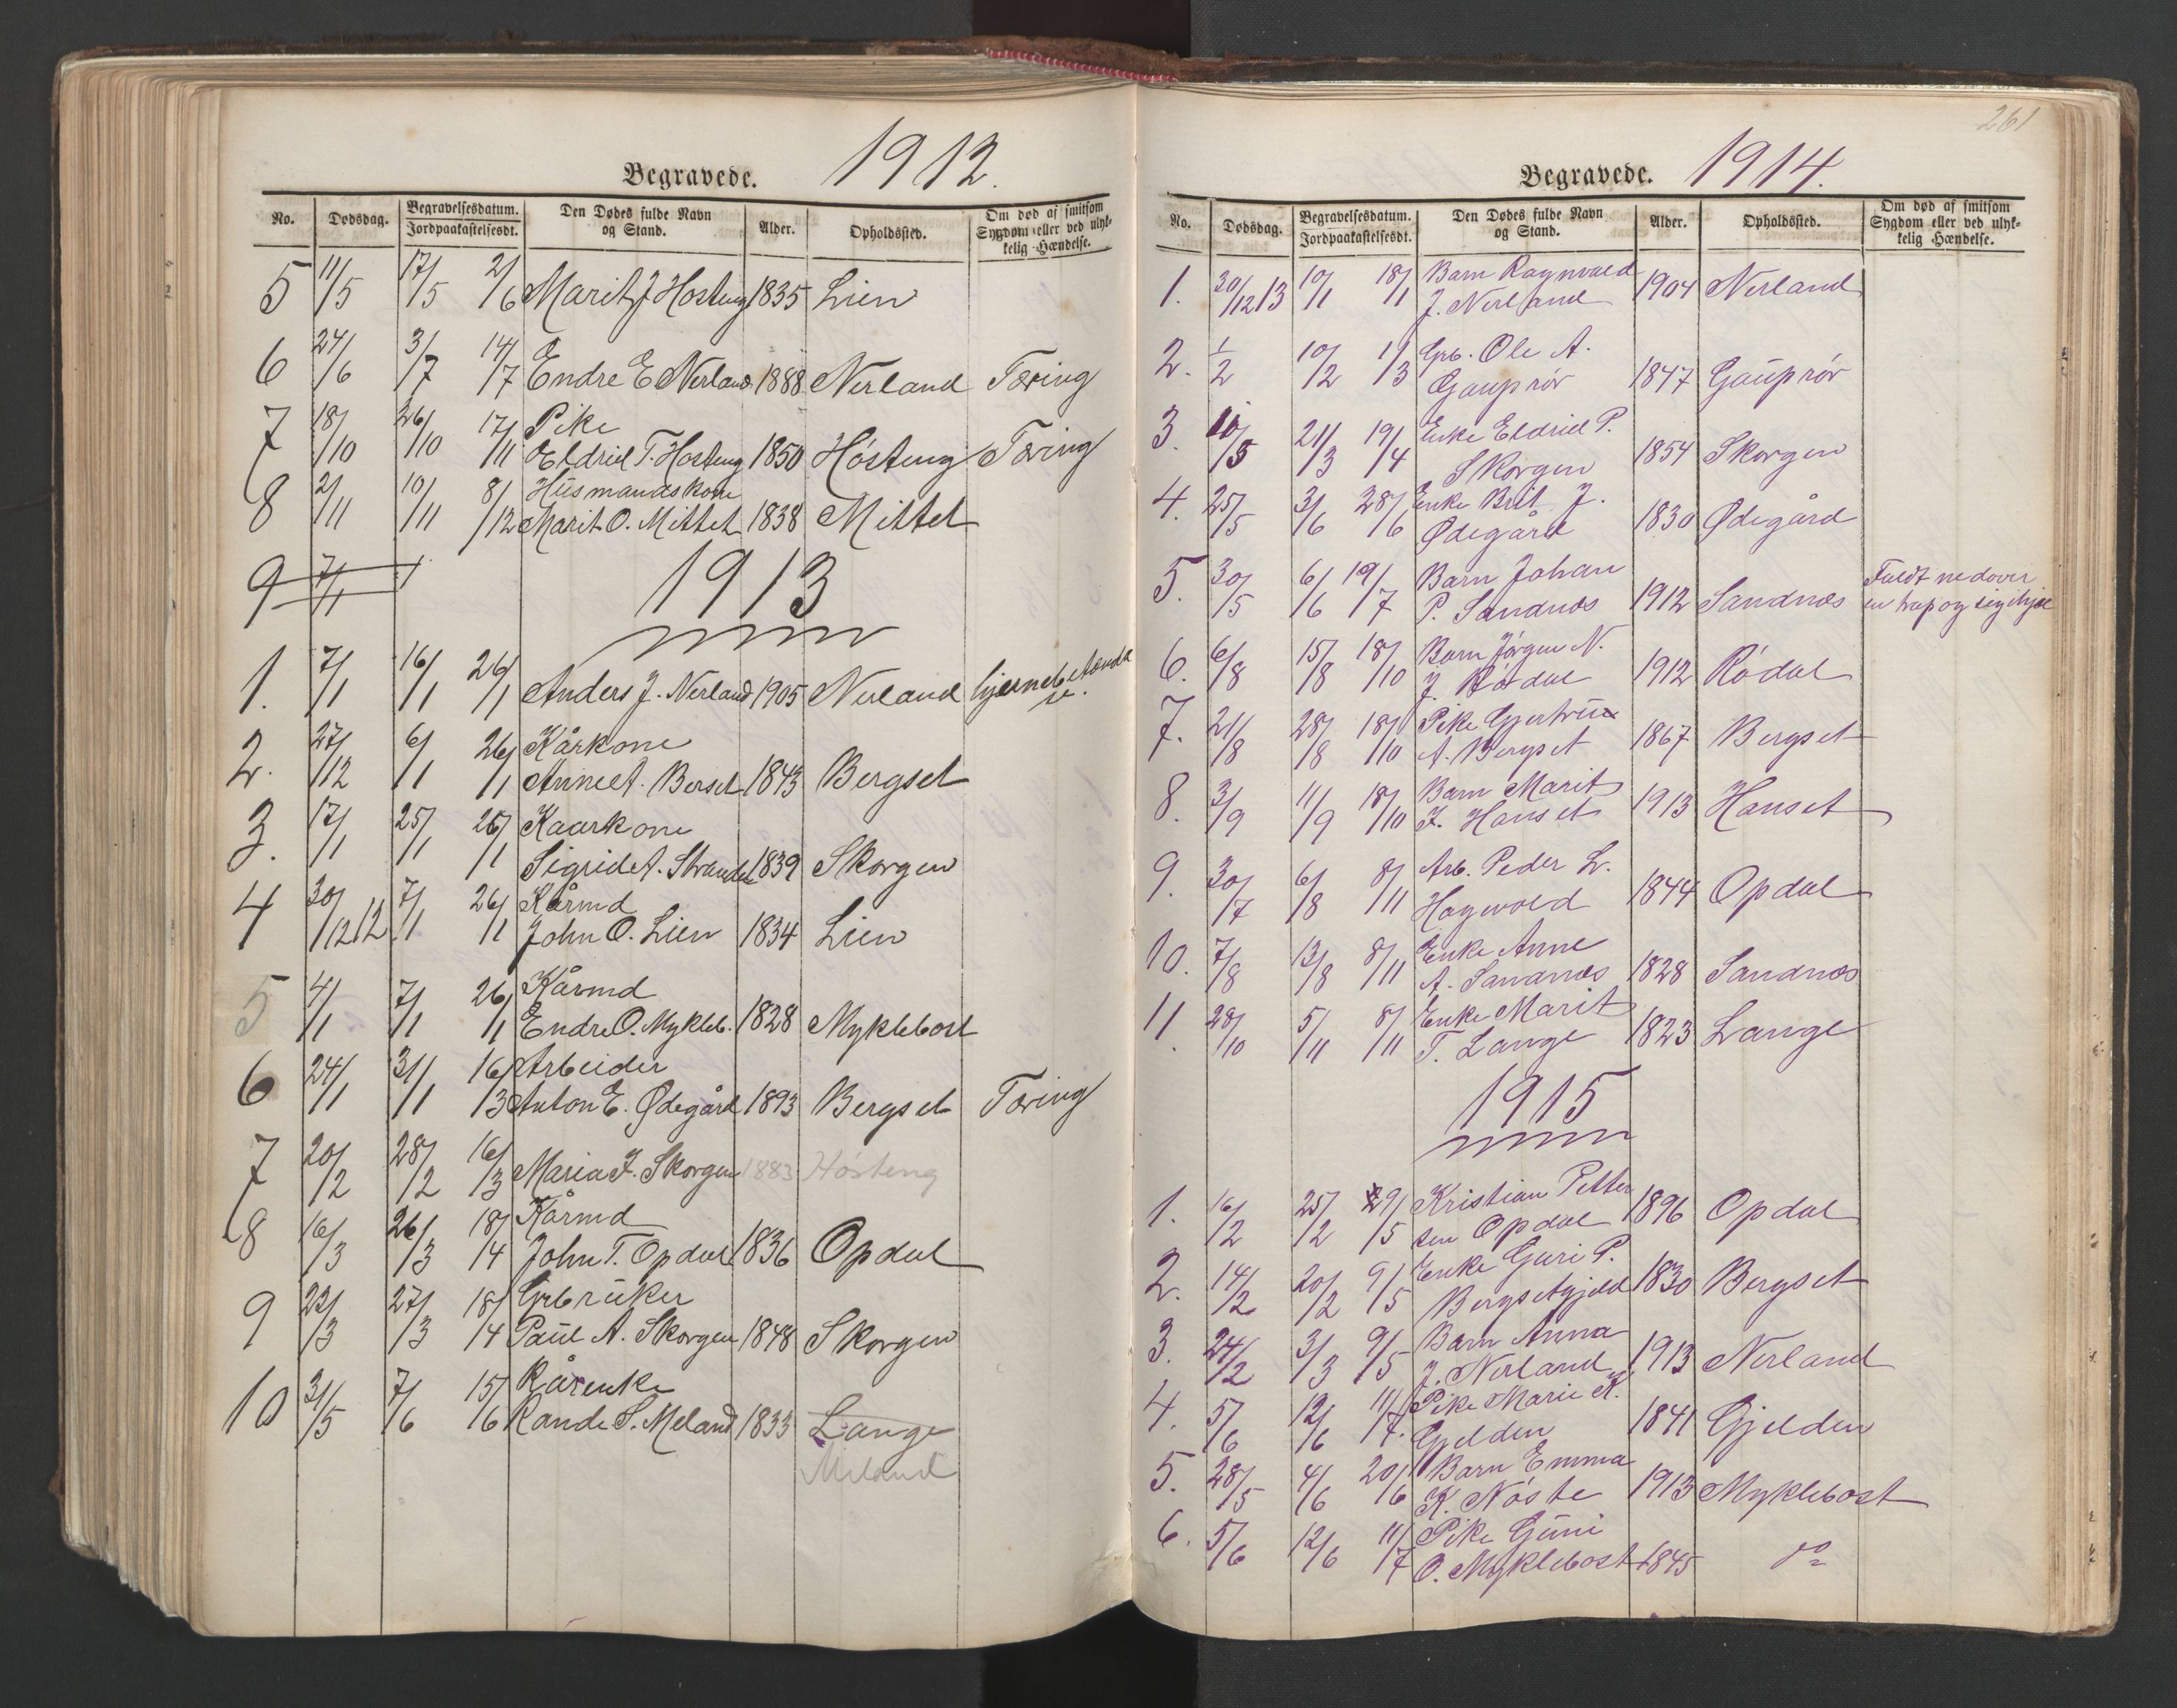 Begravede. 1912.
No. Dødsdag. Begravelsesdatum. Jordpaakastelsesdt. Den Dødes fulde Navn og Stand. Alder. Opholdssted. Om død af smitsom Sygdom eller ved ulykkelig Hændelse.
5 11/5 17/5 2/6 Marit J Hosteng 1835 Lien
6 24/6 3/7 14/7 Endre E Nerland 1888 Nerland Tæring
7 18/10 26/10 17/11 Pike
Eldrid T. Hosteng 1850 Hósteng Tæring
8 2/11 10/11 8/12 Husmandskone
Marit O. Mittet 1838 Mittet
9 7/1
1913
1. 7/1 16/1 26/1 Anders J. Nerland 1905 Nerland
2. 27/12 6/1 26/1 Kårkone
Anne A. Berset 1843 Bergset
3. 17/1 25/1 26/1 Kaarkone
Sigrid A. Stranden 1839 Skorgen
4 30/12 12 7/1 26/1 Kårmd
John O. Lien 1834 Lien
5 4/1 7/1 26/1 Kårmd
Endre O. Mykleb. 1828 Myklebost
6 24/1 31/1 16/3 Arbeider
Anton E. Ødegård 1893 Bergset Tæring
7 20/2 28/2 16/3 Maria J. Skorgen 1883 Hósteng
8 16/3 26/3 18/4 Kårmd
John T. Opdal 1836 Opdal
9 22/3 27/3 18/4 Grbruker
Paul A. Skorgen 1848 Skorgen
10 31/5 7/6 15/6 Kårenke
Rande S. Meland 1833 Lange
Meland
261
Begravede. 1914.
No. Dødsdag. Begravelsesdatum. Jordpaakastelsesdt. Den Dødes fulde Navn og Stand. Alder. Opholdssted. Om død af smitsom Sygdom eller ved ulykkelig Hændelse.
1. 30/12 13 10/1 18/1 Barn Ragnvald
J. Nerland 1904 Nerland
2. 1/2 10/2 1/3 Grb. Ole A.
Gauprór 1847 Gauprór
3. 10/3 21/3 19/4 Enke Eldrid P.
Skorgen 1854 Skorgen
4. 25/5 3/6 28/6 Enke Brit J.
Ødegård 1830 Ødegård
5. 30/5 6/6 19/7 Barn Johan
P. Sandnæs 1912 Sandnæs Faldt nedover
en trap og sig ihjæl
6. 6/8 15/8 18/10 Barn Jórgen N.
J. Ródal 1912 Ródal
7. 21/8 28/8 18/10 Pike Gjertrud
A. Bergset 1867 Bergset
8. 3/9 11/9 18/10 Barn Marit
J. Hanset 1913 Hanset
9. 30/7 6/8 8/11 Arb. Peder L.
Hagvold 1844 Opdal
10. 7/8 13/8 8/11 Enke Anne
A. Sandnæs 1828 Sandnæs
11. 28/10 5/11 8/11 Enke Marit
T. Lange 1823 Lange
1915
1. 16/2 25/2 9/5 Kristian Petter
sen Opdal 1896 Opdal
2. 14/2 20/2 9/5 Enke Guri P.
Bergsetgjeld 1830 Bergset
3. 24/2 3/3 9/5 Barn Anna
J. Nerland 1913 Nerland
4. 5/6 12/6 11/7. Pike Marie K.
Gjelden 1841 Gjelden
5. 28/5 4/6 20/6 Barn Emma
K. Nóste 1913 Myklebost
6. 5/6 12/6 11/7 Pike Guni
O. Myklebost 1845 do